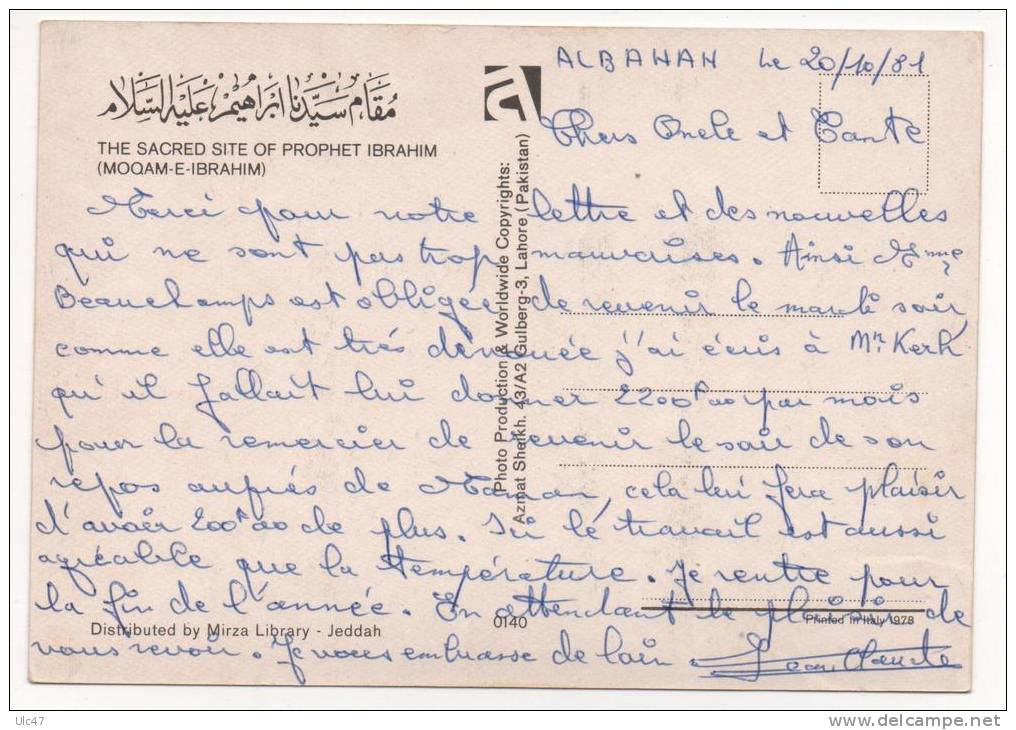 ALBAHAH le 20/10/81
مقام سيدنا ابراهيم عليه السلام
THE SACRED SITE OF PROPHET IBRAHIM
(MOQAM-E-IBRAHIM)
Chers Oncle et Tante
Merci pour votre lettre et des nouvelles
qui ne sont pas trop mauvaises. Ainsi Mme
Beauchamps est obligée de revenir le mardi soir
comme elle est très dévouée j'ai écris à Mr Kerk
qu'il fallait lui donner 2200F00 par mois
pour la remercier de revenir le soir de son
repos auprès de Maman, cela lui fera plaisir
d'avoir 200F00 de plus. Ici le travail est aussi
agréable que la température. Je rentre pour
la fin de l'année. En attendant le plaisir de
vous revoir. Je vous embrasse de loin. Jean Claude
(Photo Production & Worldwide Copyrights:
Azmat Sheikh. 43/A2 Gulberg-3, Lahore (Pakistan)
Distributed by Mirza Library - Jeddah
0140
Printed in Italy 1978
Ulc47
delcampe.net